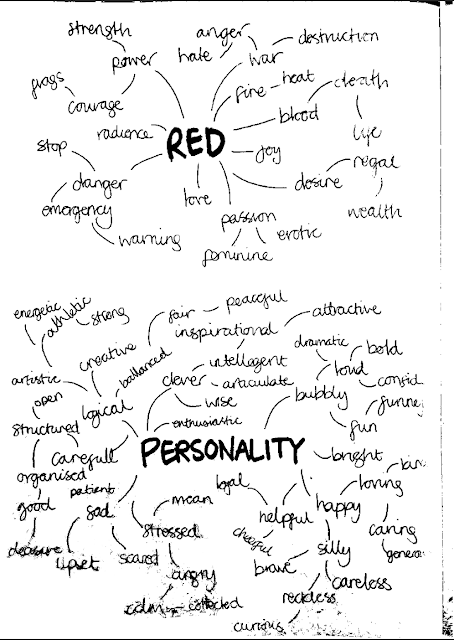 strength
anger
destruction
power
hate
war
flags
fire
heat
death
courage
blood
radience
RED
life
stop
joy
regal
danger
love
desire
emergency
passion
wealth
warning
erotic
feminine
energetic
athletic
strong
fair
peaceful
attractive
inspirational
dramatic
bold
creative
ballanced
intellegent
loud
artistic
clever
articulate
open
logical
wise
bubbly
structured
enthusiastic
fun
carefull
PERSONALITY
bright
organised
patient
loyal
loving
good
sad
mean
helpful
happy
stressed
cheerful
caring
upset
scared
silly
angry
brave
careless
calm
reckless
curious